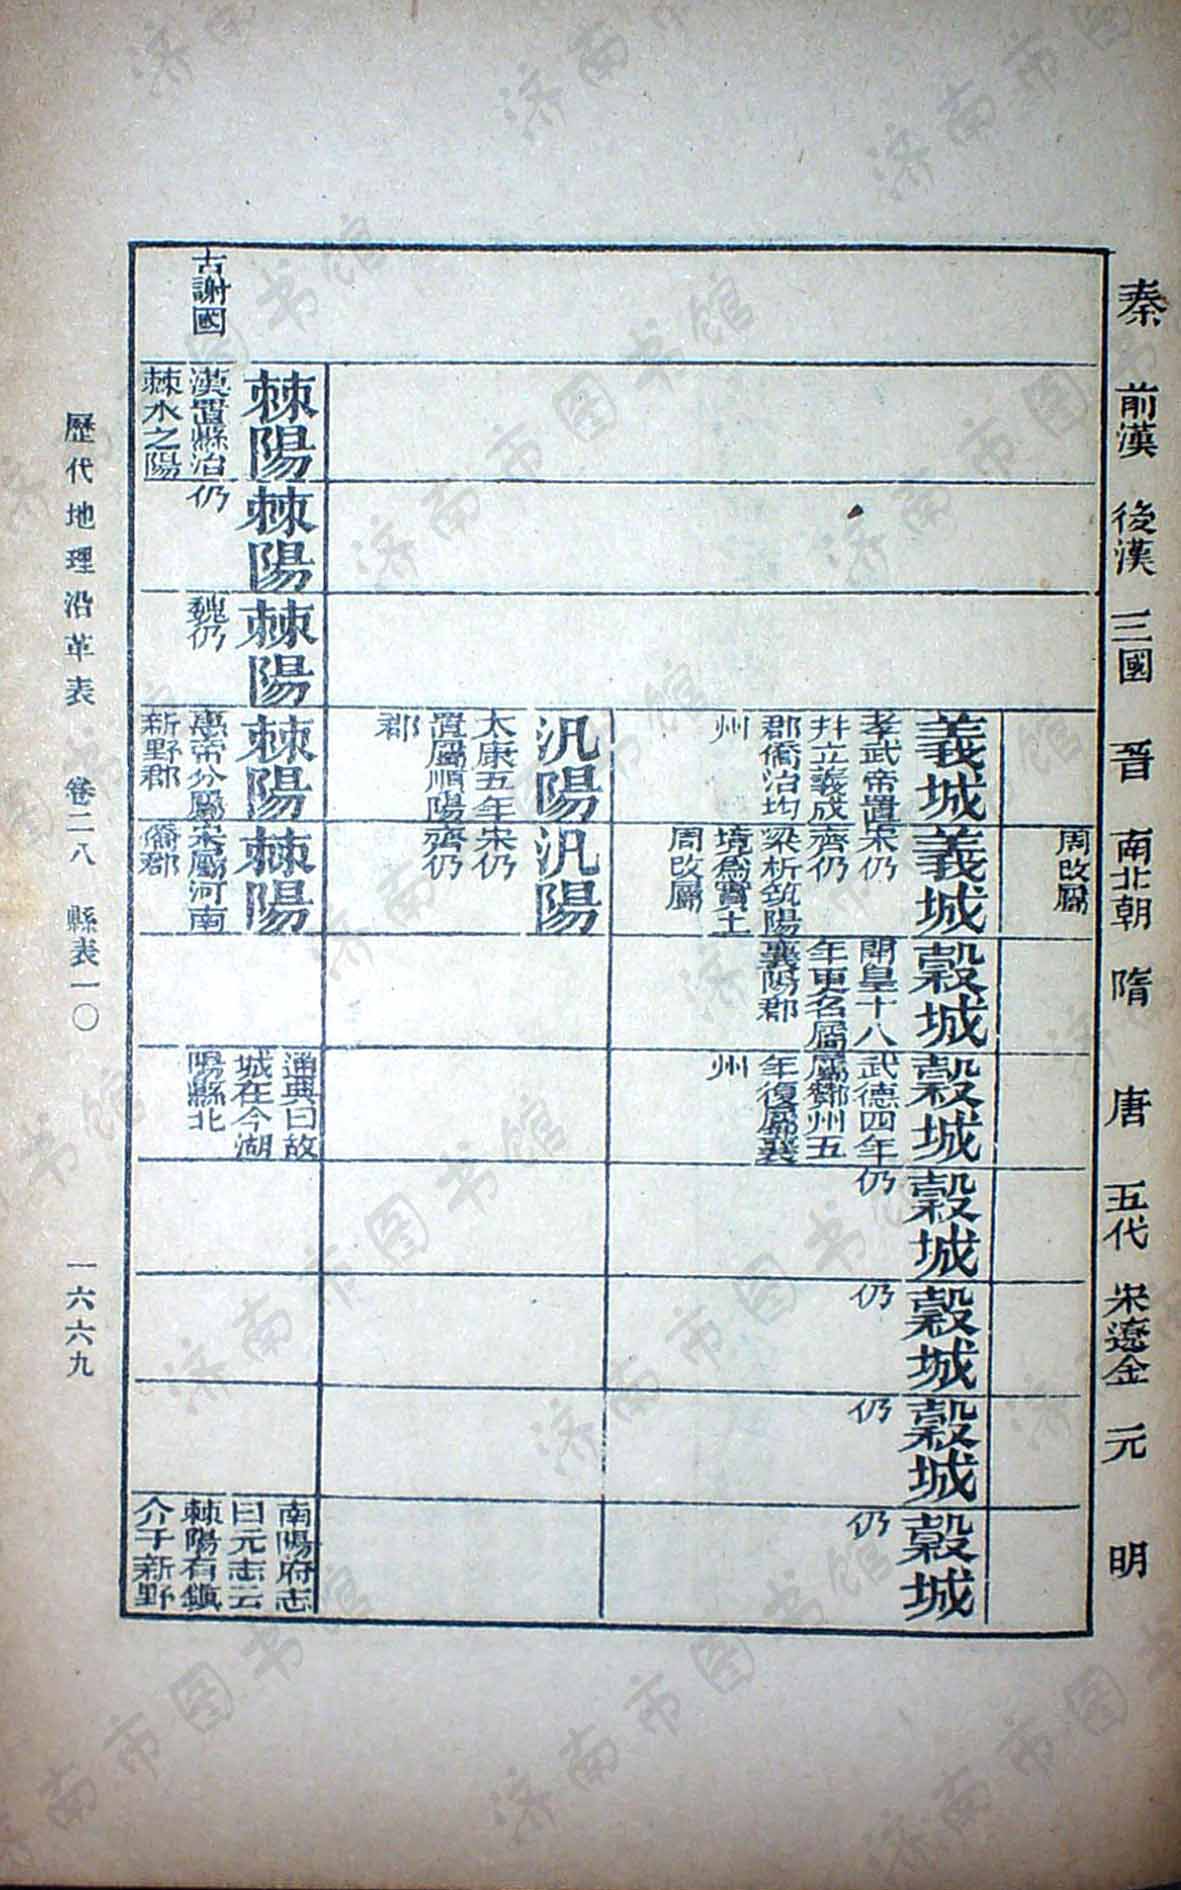 秦
前漢
後漢
三國
晉
南北朝
隋
唐
五代
宋遼金
元
明
周改屬
義城
孝武帝置
幷立義成
郡僑治均
州
義城
宋仍
齊仍
梁析筑陽
境爲實土
周改屬
穀城
開皇十八
年更名屬
襄陽郡
穀城
武德四年
屬酇州五
年復屬襄
州
穀城
仍
穀城
仍
穀城
仍
穀城
仍
汎陽
太康五年
置屬順陽
郡
汎陽
宋仍
齊仍
古謝國
棘陽
漢置縣治
棘水之陽
棘陽
仍
棘陽
魏仍
棘陽
惠帝分屬
新野郡
棘陽
宋屬河南
僑郡
通典曰故
城在今湖
陽縣北
南陽府志
曰元志云
棘陽有鎭
介于新野
歷代地理沿革表 卷二八 縣表一〇 一六六九
济南市图书馆